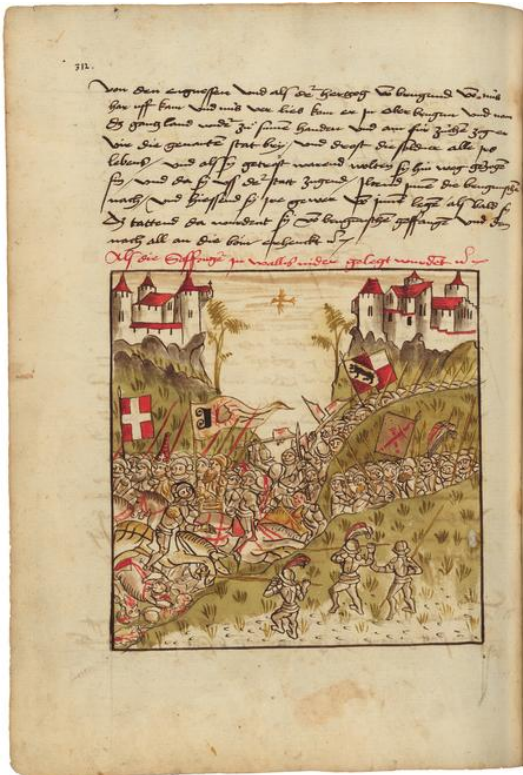 312.
von den eignossen und als der hertzog von burgund von uns
har uff kam und uns ver lies kam er in ober burgun und nam
das gantz land wider zu sinen handen und am fur zuchen zogen
vir die genante stat bry und drost die soldner alle jrs
lebens und als sy getrost warend wolten sy hin weg gezogen
sin und da sy uss der statt zugend jltend jnen die burgunschen
nach und hiessend sy jre gewer von jnen legen als bald sy
das tattend da wurdent sy von burgunschen gefangen und den
nach all an die boim erhenckt
Als die Saffoyer in wallis nider gelegt wurdet